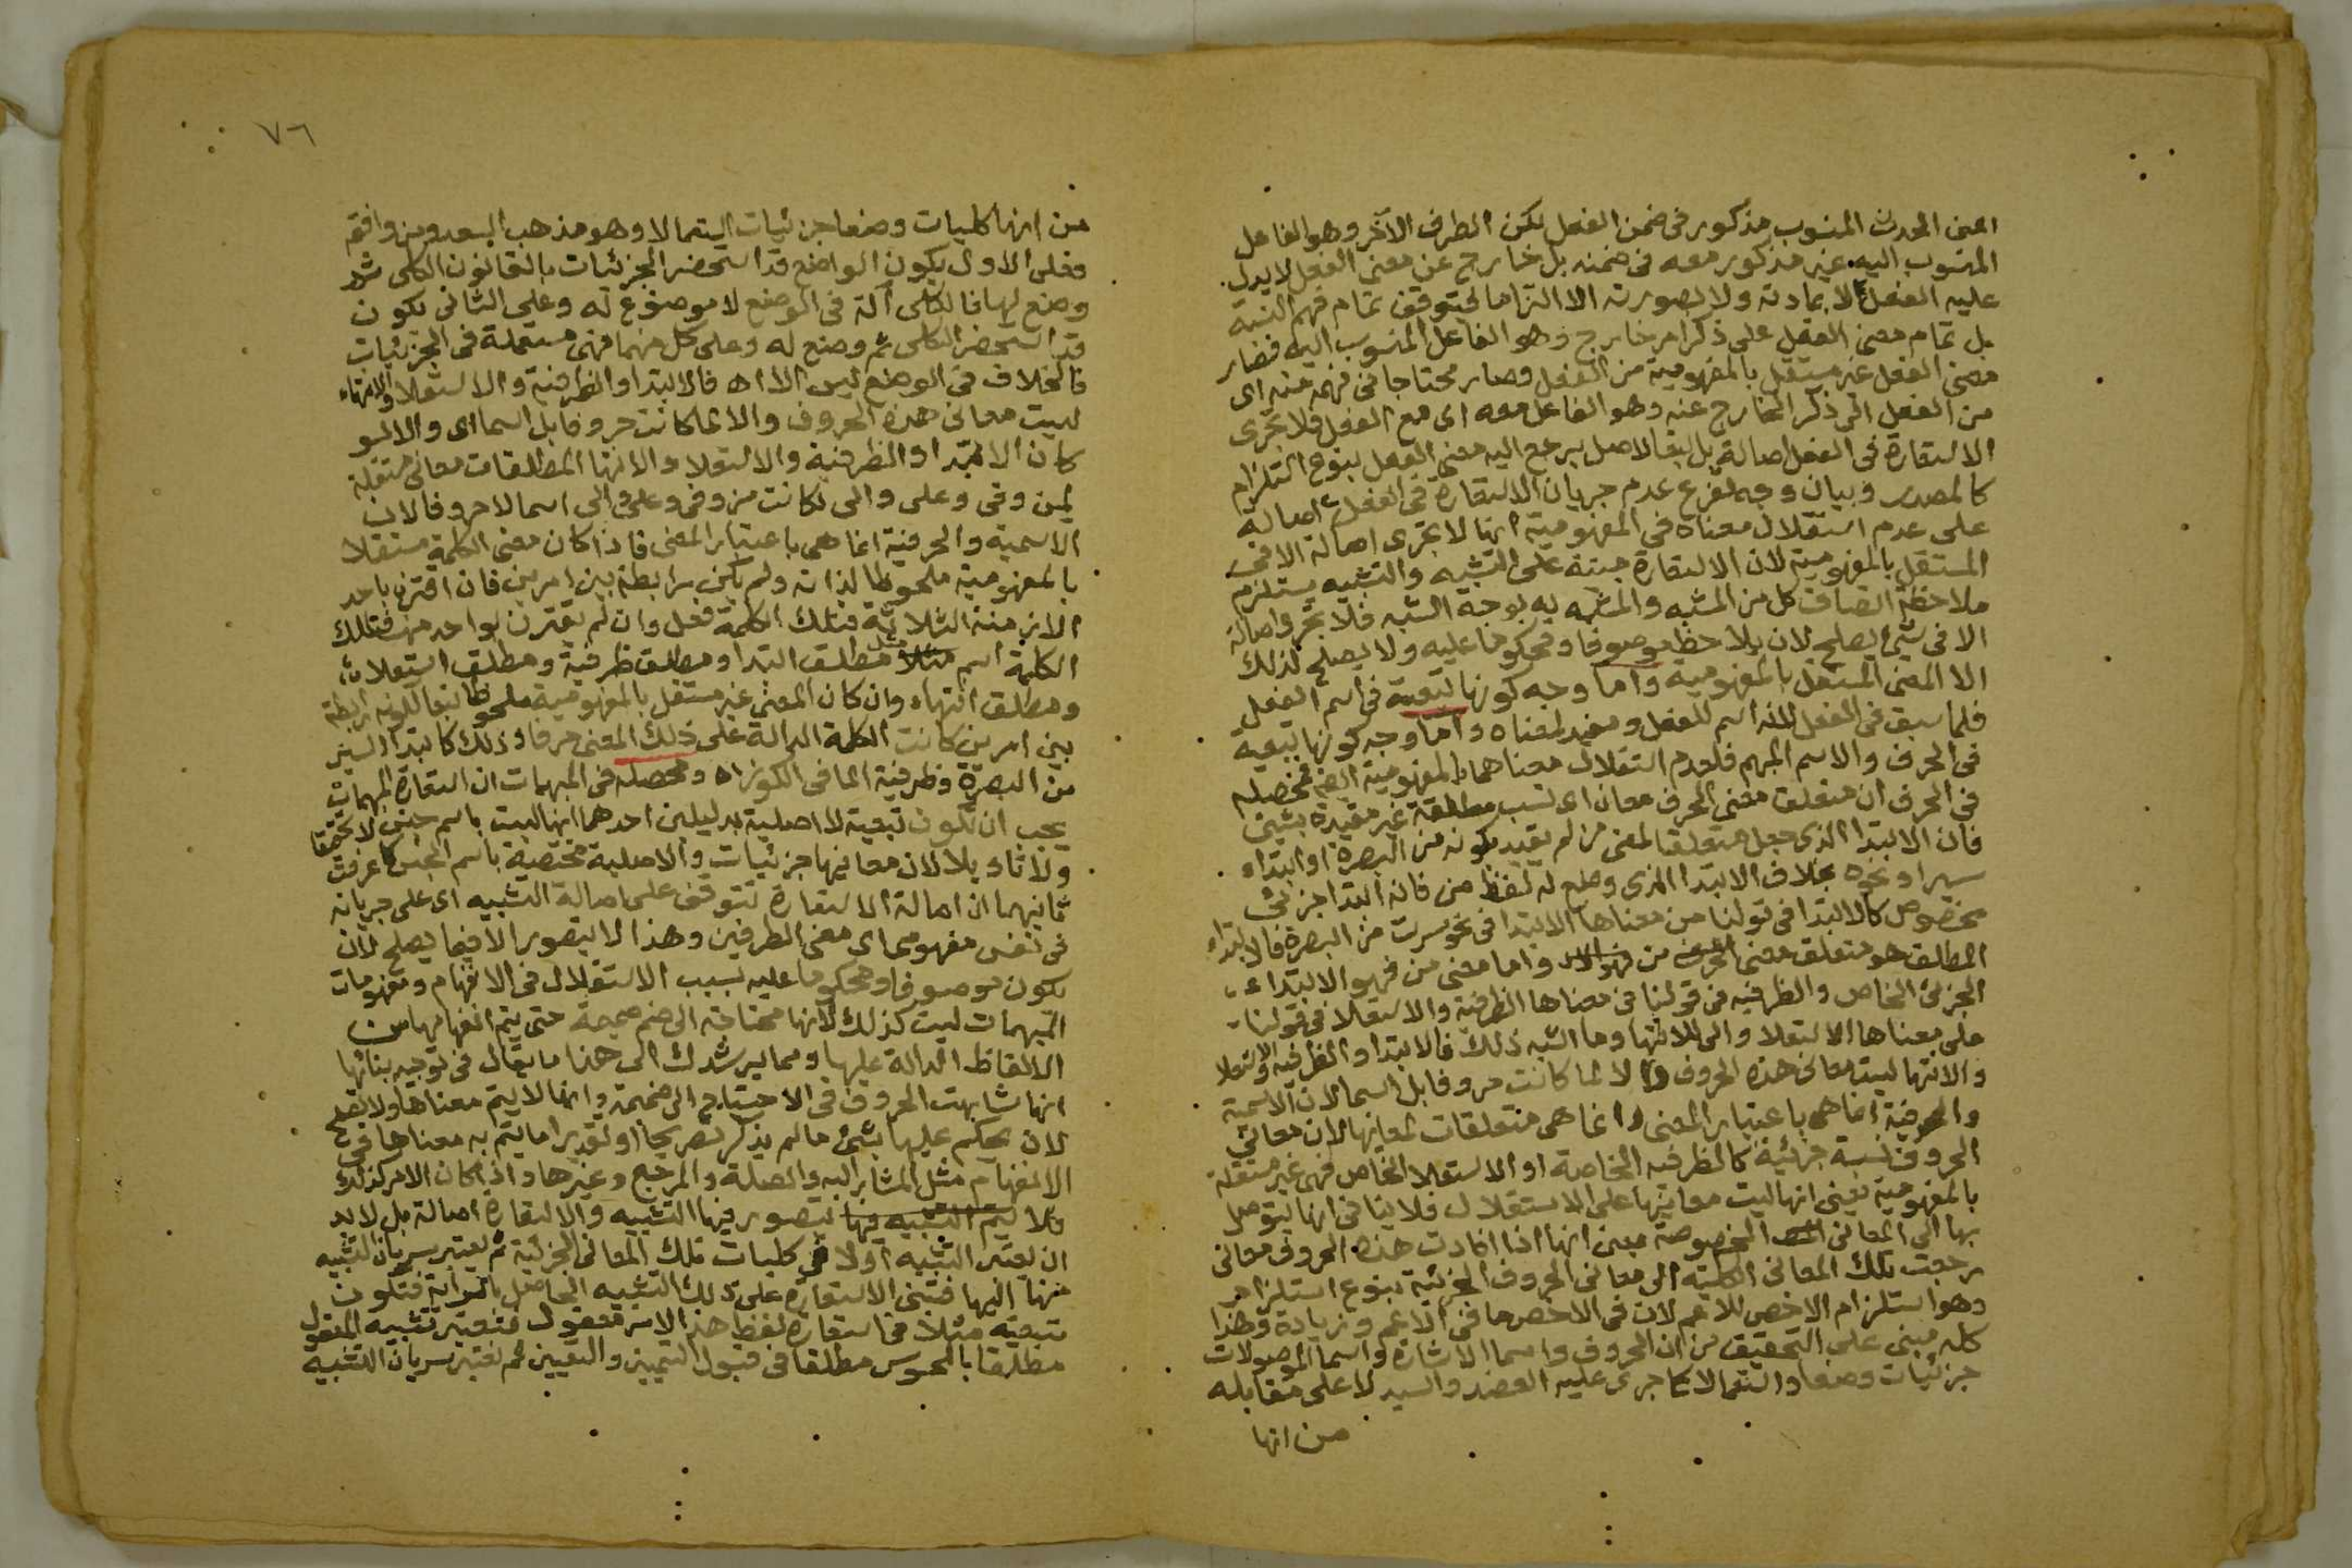 اعنى الحدث المنسوب مذكور فى ضمن الفعل لكن الطرف الآخر وهو الفاعل
المنسوب اليه غير مذكور معه فى ضمنه بل خارج عن معنى الفعل لا يدل
عليه الفعل لا بمادته ولا بصورته الا التزاما لتوقف تمام فهم النسبة
بل تمام معنى الفعل على ذكر امر خارج وهو الفاعل المنسوب اليه فصار
معنى الفعل غير مستقل بالمفهومية من الفعل وصار محتاجا فى فهمه منه اى
من الفعل الى ذكر الخارج عنه وهو الفاعل معه اى مع الفعل فلا تجرى
الاستعارة فى الفعل اصالة بل تبعا لاصل يرجع اليه معنى الفعل بنوع استلزام
كالمصدر وبيان وجه تفرع عدم جريان الاستعارة فى الفعل اصالة
على عدم استقلال معناه فى المفهومية انها لا تجرى اصالة الا فى
المستقل بالمفهومية لان الاستعارة مبنية على التشبيه والتشبيه يستلزم
ملاحظة اتصاف كل من المشبه والمشبه به بوجه الشبه فلا تجرى اصالة
الا فى شئ يصلح لان يلاحظ موصوفا ومحكوما عليه ولا يصلح لذلك
الا المعنى المستقل بالمفهومية واما وجه كونها تبعية فى اسم الفعل
فلما سبق فى الفعل لانه اسم للفعل ومفيد لمعناه واما وجه كونها تبعية
فى الحرف والاسم المبهم فلعدم استقلال معناهما بالمفهومية ايضا فمحصله
فى الحرف ان متعلق معنى الحرف معان اى نسب مطلقة غير مقيدة بشئ
فان الابتدا الذى جعل متعلقا لمعنى من لم يقيد بكونه من البصرة او ابتداء
سير او نحوه بخلاف الابتدا الذى وضع له لفظ من فانه ابتدا جزئى
مخصوص كالابتدا فى قولنا من معناها الابتدا فى نحو سرت من البصرة فالابتداء
المطلق هو متعلق معنى الحرف من واما معنى من فهو الابتداء
الجزئى الخاص والظرفيه فى قولنا فى معناها الظرفية والاستعلا فى قولنا
على معناها الاستعلا والى للانتها وما اشبه ذلك فالابتدا والظرفيه والاستعلا
والانتها ليست معانى هذه الحروف والا لما كانت حروفا بل اسما لان الاسمية
والحرفية انما هى باعتبار المعنى وانما هى متعلقات لمعانيها لان معانى
الحروف نسبة جزئية كالظرفيه الخاصة او الاستعلا الخاص فهى غير مستقلة
بالمفهومية يعنى انها ليست معانيها على الاستقلال فلا ينافى انها يتوصل
بها الى المعانى المخصوصة بمعنى انها اذا افادت هذه الحروف معانى
رجعت تلك المعانى الكلية الى معانى الحروف الجزئية بنوع استلزام
وهو استلزام الاخص للاعم لان فى الاخص ما فى الاعم وزيادة وهذا
كله مبنى على التحقيق من ان الحروف واسما الاشارة واسما الموصولات
جزئيات وضعا واستعمالا كما جرى عليه العضد والسيد لا على مقابله
من انها
٧٦
من انها كليات وضعا جزئيات استعمالا وهو مذهب السعد ومن وافقه
فعلى الاول يكون الواضع قد استحضر الجزئيات بالقانون الكلى ثم
وضع لها فالكلى آلة فى الوضع لا موضوع له وعلى الثانى يكون
قد استحضر الكلى ثم وضع له وعلى كل منهما فهى مستعملة فى الجزئيات
فالخلاف فى الوضع ليس الا اه فالابتدا والظرفية والاستعلا والانتهاء
ليست معانى هذه الحروف والا لما كانت حروفا بل اسما اى والا لو
كان الابتدا والظرفية والاستعلا والانتها المطلقات معانى مستقلة
لمن وفى وعلى والى لكانت من وفى وعلى والى اسما لا حروفا لان
الاسمية والحرفية انما هى باعتبار المعنى فاذا كان معنى الكلمة مستقلا
بالمفهومية ملحوظا لذاته ولم يكن رابطة بين امرين فان اقترن باحد
الازمنة الثلاثة فتلك الكلمة فعل وان لم يقترن بواحد منها فتلك
الكلمة اسم مثل مطلق ابتدا ومطلق ظرفية ومطلق استعلاء
ومطلق انتهاء وان كان المعنى غير مستقل بالمفهومية ملحوظا تبعا لكونه رابطة
بين امرين كانت الكلمة الدالة على ذلك المعنى حرفا وذلك كابتدا السير
من البصرة وظرفية الما فى الكوز اه ومحصله فى المبهمات ان استعارة المبهمات
يجب ان تكون تبعية لا اصلية بدليلين احدهما انها ليست باسم جنس لا تحقيقا
ولا تاويلا لان معانيها جزئيات والاصلية مختصة باسم الجنس كما عرفت
ثانيهما ان اصالة الاستعارة تتوقف على اصالة التشبيه اى على جريانه
فى نفس مفهومى اى معنى الطرفين وهذا لا يتصور الا فيما يصلح لان
يكون موصوفا ومحكوما عليه بسبب الاستقلال فى الانفهام ومفهومات
المبهمات ليست كذلك لانها محتاجة الى ضم ضميمة حتى يتم انفهامها من
الالفاظ الدالة عليها ومما يرشدك الى هذا ما يقال فى توجيه بنائها
انها شابهت الحروف فى الاحتياج الى ضميمة وانها لا يتم معناها ولا تصلح
لان يحكم عليها بشئ ما لم يذكر تصريحا او تقديرا ما يتم به معناها فى
الانفهام مثل المشار اليه والصلة والمرجع وغيرها واذا كان الامر كذلك
فلا يتصور فيها التشبيه والاستعارة اصالة بل لا بد
ان يعتبر التشبيه اولا فى كليات تلك المعانى الجزئية ثم يعتبر سريان التشبيه
منها اليها فتبنى الاستعارة على ذلك التشبيه الحاصل بالسراية فتكون
تبعية مثلا فى استعارة لفظ هذا لامر معقول فتعتبر تشبيه المعقول
مطلقا بالمحسوس مطلقا فى قبول التمييز والتعيين ثم تعتبر سريان التشبيه